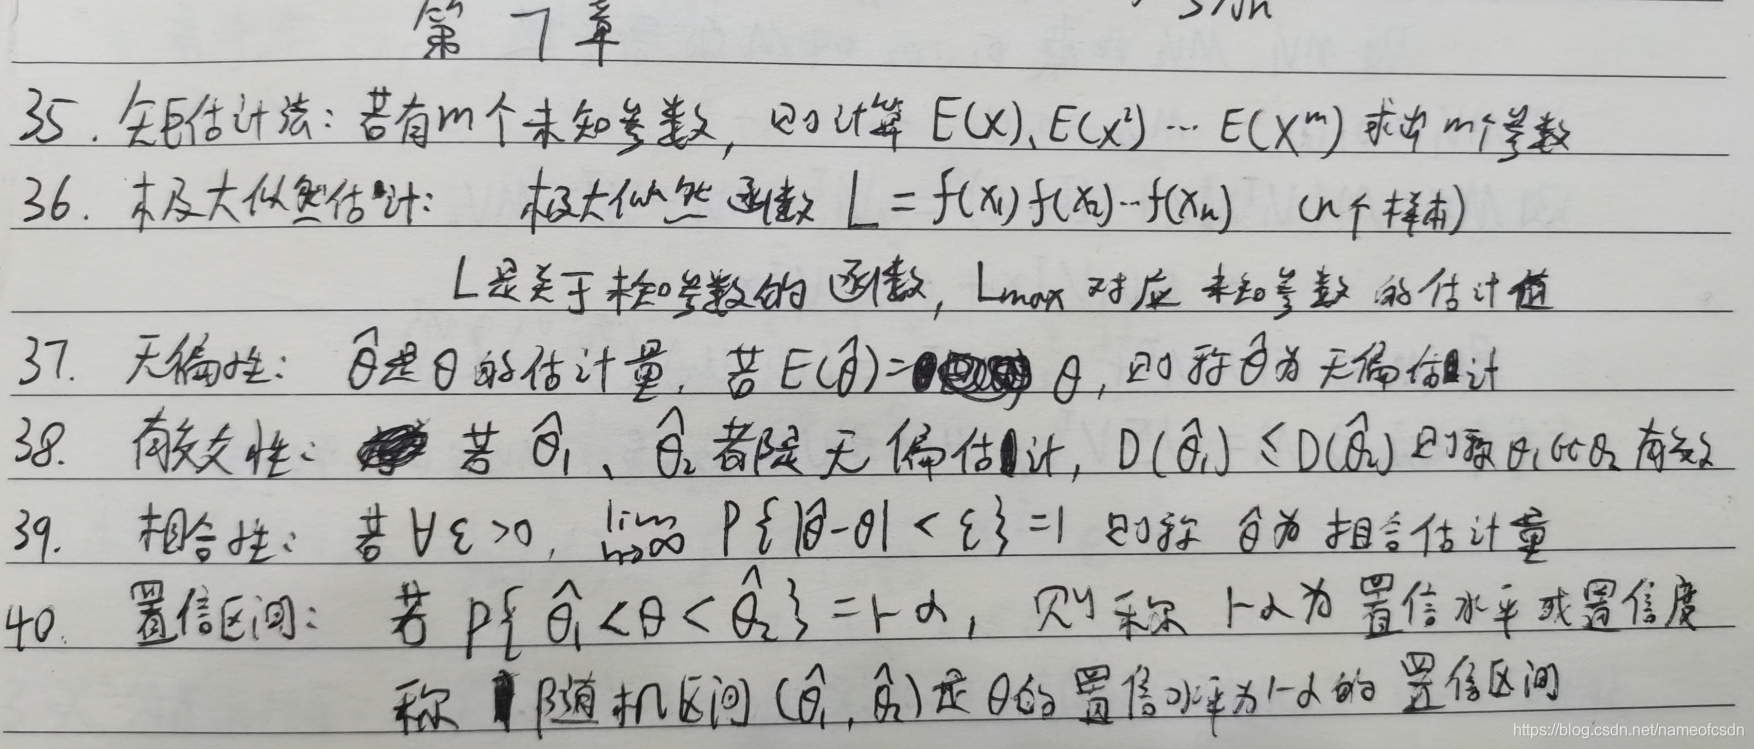 S/√n
第7章
35. 矩估计法：若有m个未知参数，则计算 E(X)、E(X²)…E(Xᵐ) 求出m个参数
36. 极大似然估计： 极大似然函数 L = f(x₁)f(x₂)…f(xₙ) (n个样本)
L是关于未知参数的函数，Lmax 对应 未知参数 的估计值
37. 无偏性： θ̂是θ的估计量，若E(θ̂)= θ，则称θ̂为无偏估计
38. 有效性： 若 θ̂₁、θ̂₂都是无偏估计，D(θ̂₁) ≤ D(θ̂₂) 则称θ₁比θ₂有效
39. 相合性： 若∀ε>0，lim n→∞ P{|θ̂-θ| < ε} = 1 则称 θ̂为相合估计量
40. 置信区间： 若 P{θ̂₁<θ<θ̂₂} = 1-α，则称 1-α为置信水平或置信度
称 随机区间(θ̂₁, θ̂₂)是θ的置信水平为1-α的置信区间
https://blog.csdn.net/nameofcsdn